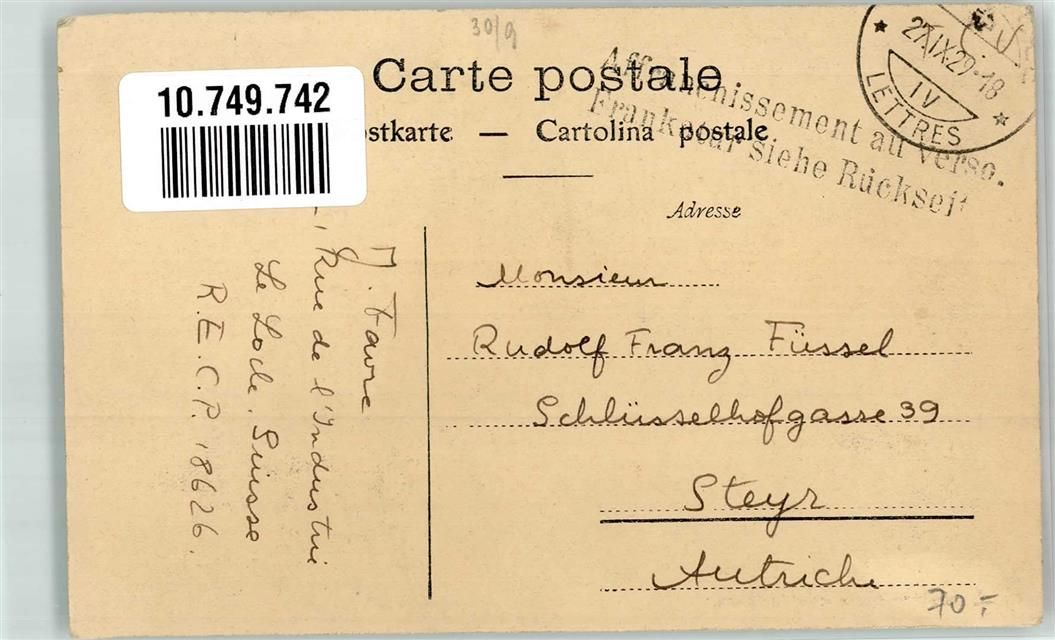 30/9
Carte postale
10.749.742
ostkarte — Cartolina postale
Affranchissement au verso.
Frankatur siehe Rückseit
27.IX.29-18
IV
LETTRES
Adresse
Monsieur
Rudolf Franz Füssel
Schlüsselhofgasse 39
Steyr
Autriche
70.-
J. Favre
Rue de l'Industrie
Le Locle. Suisse
R.E.C.P. 18626.